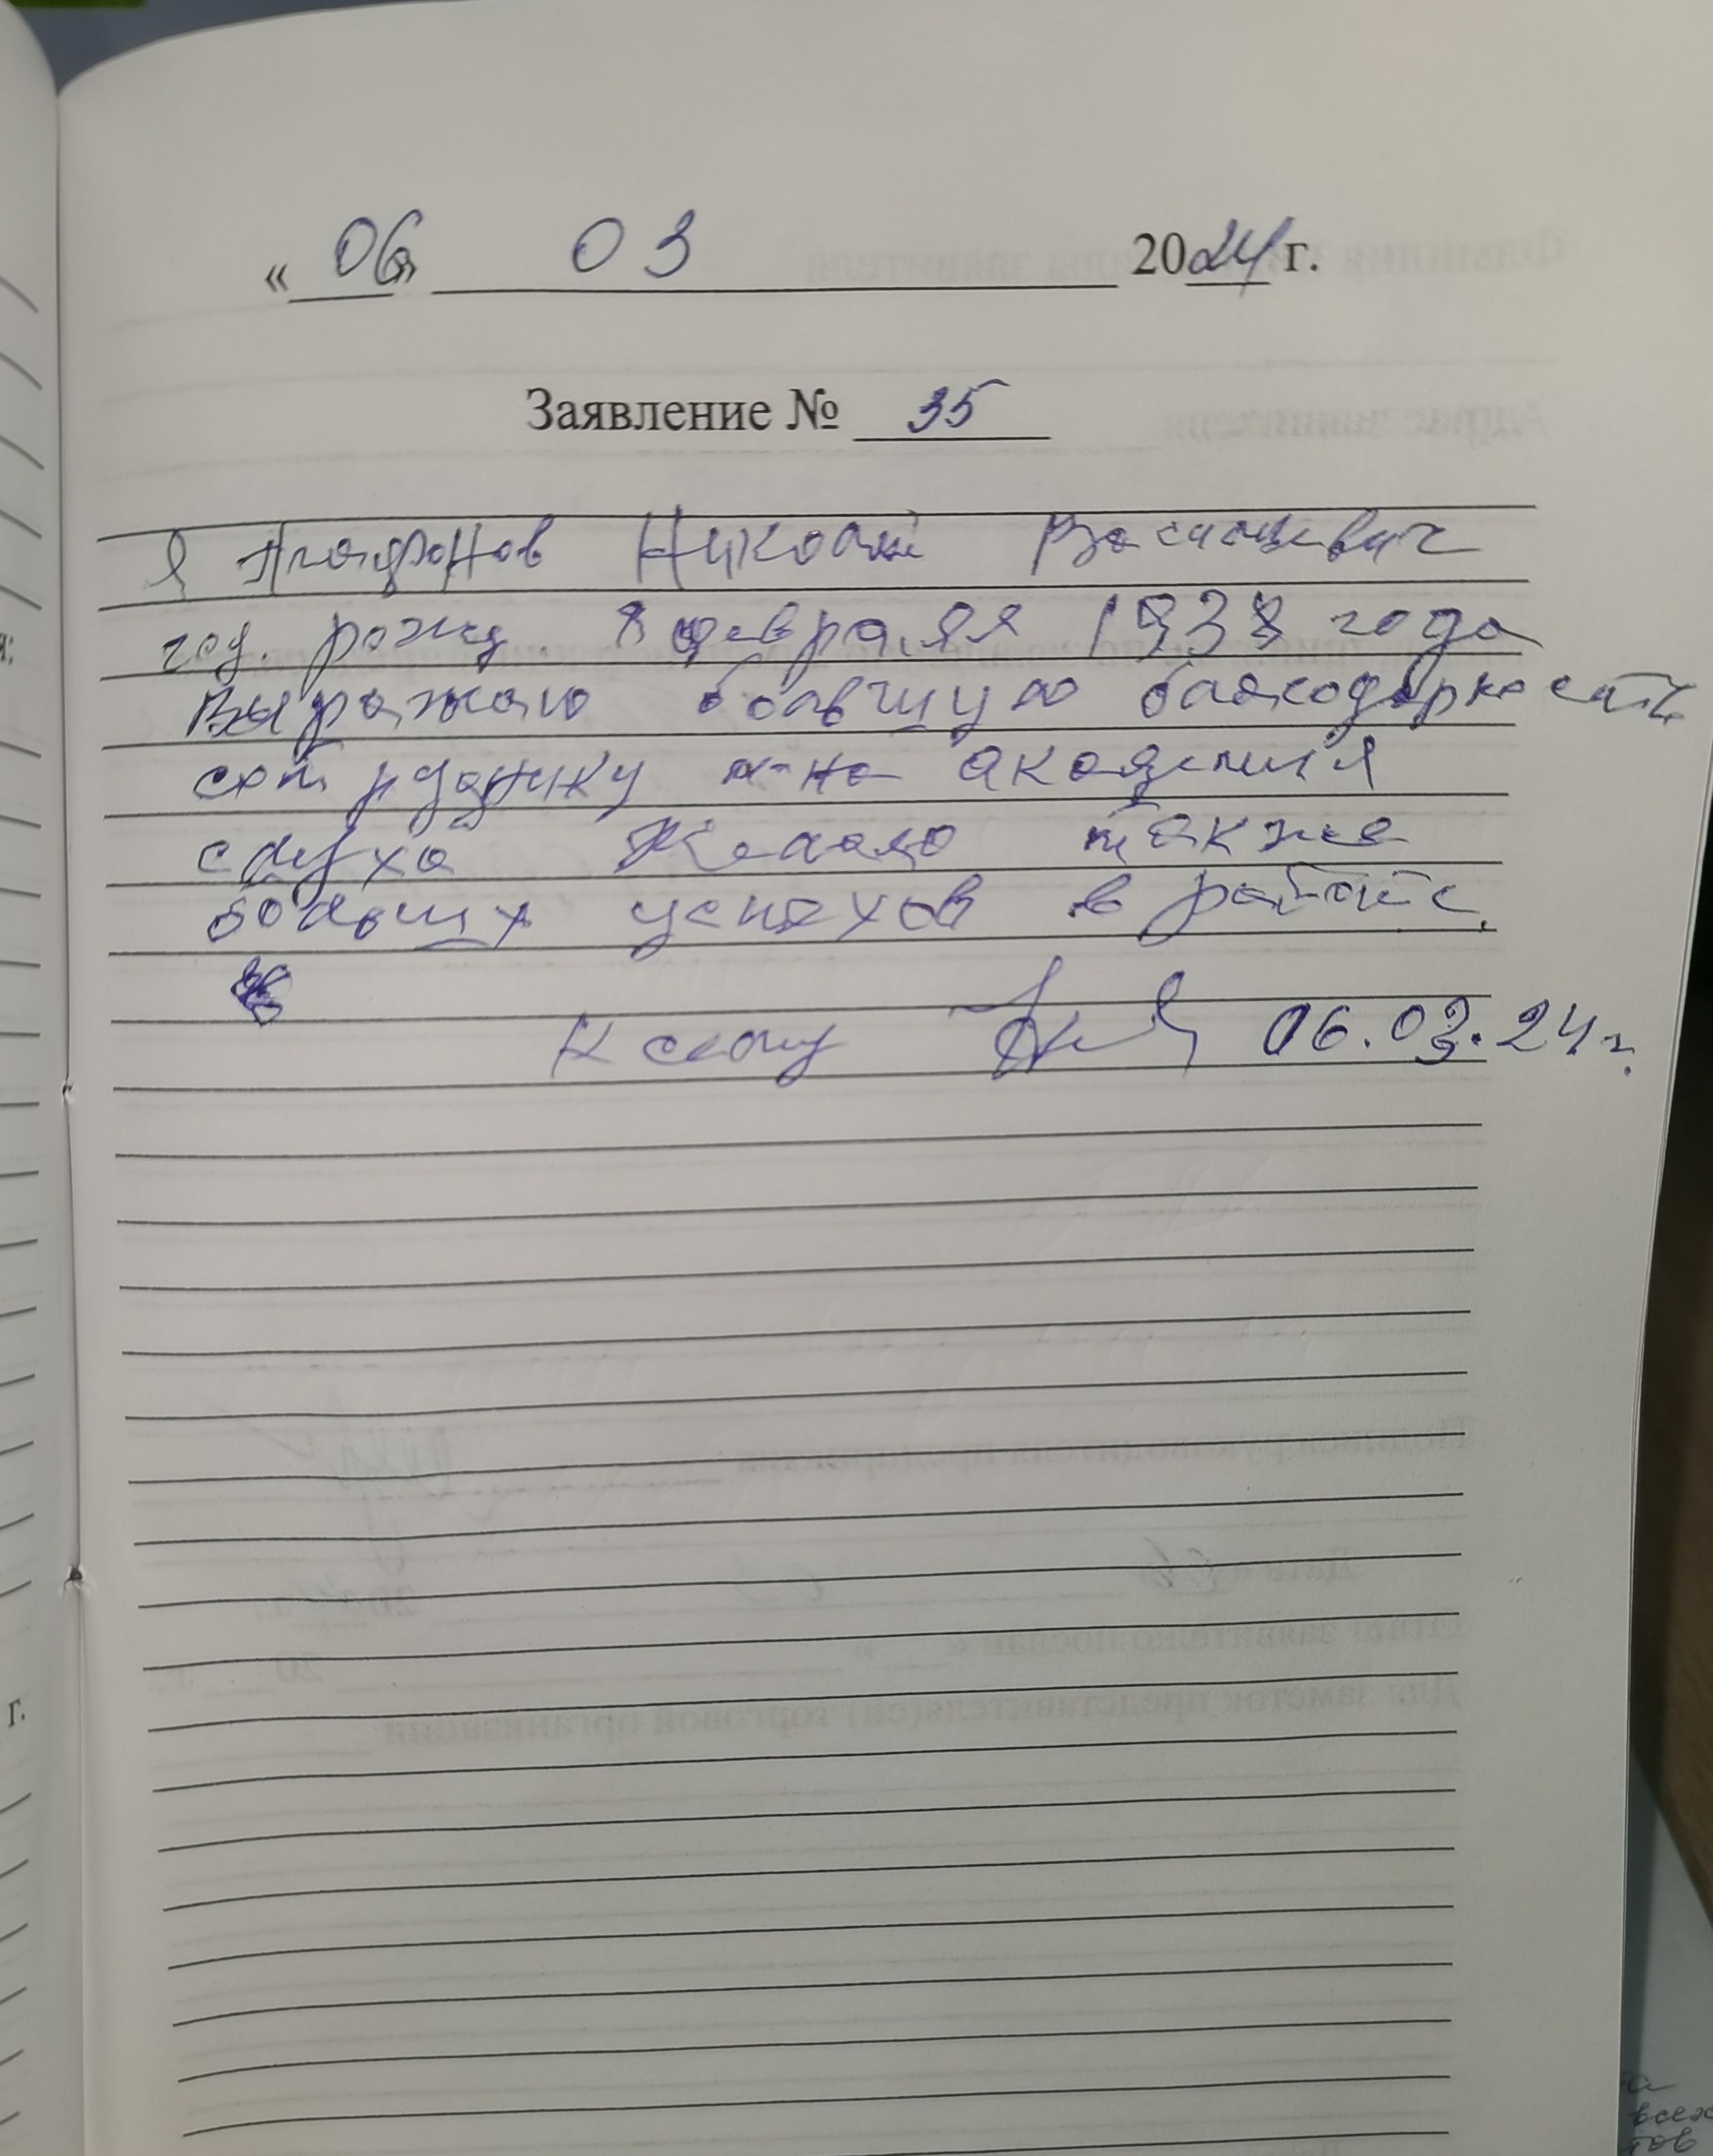 « 06 » 03 2024 г.
Заявление № 35
Я Агафонов Николай Васильевич
год. рожд. 8 февраля 1938 года
Выражаю большую благодарность
сотруднику м-на академия
слуха Желаю также
больших успехов в работе.
К сему 06.03.24 г.
г.
всех